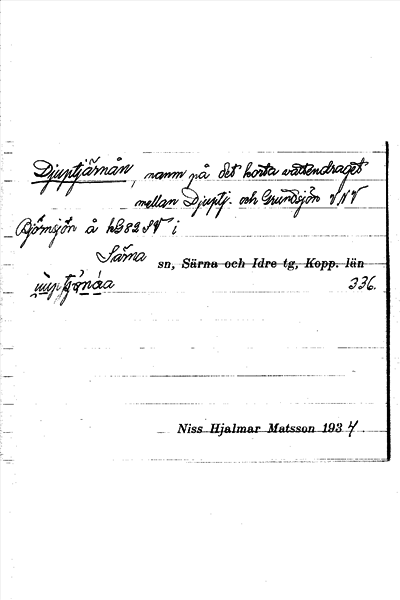 Djuptjärnån, namn på det korta vattendraget
mellan Djuptj. och Grundsjön VNV
Björnsjön å hG82SV i
Särna sn, Särna och Idre tg, Kopp. län
336.
Niss Hjalmar Matsson 1934.